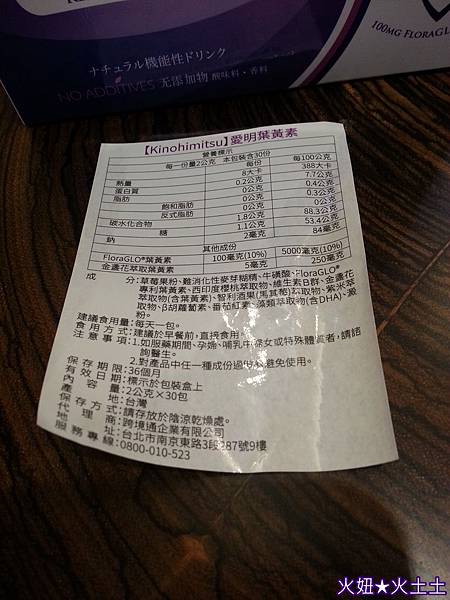 100MG FLORAGLO
ナチュラル機能性ドリンク
NO ADDITIVES 无添加物 酸味料・香料
【Kinohimitsu】愛明葉黃素
營養標示
每一份量2公克 本包裝含30份
每份 每100公克
熱量 8大卡 388大卡
蛋白質 0.2公克 7.7公克
脂肪 0公克 0.4公克
飽和脂肪 0公克 0.3公克
反式脂肪 0公克 0公克
碳水化合物 1.8公克 88.3公克
糖 1.1公克 53.4公克
鈉 2毫克 84毫克
其他成份
FloraGLO®葉黃素 100毫克(10%) 5000毫克(10%)
金盞花萃取葉黃素 5毫克 250毫克
成 分:草莓果粉、難消化性麥芽糊精、牛磺酸、FloraGLO®
專利葉黃素、西印度櫻桃萃取物、維生素B群、金盞花
萃取物(含葉黃素)、智利酒果(馬基莓)萃取物、紫米萃
取物、β胡蘿蔔素、番茄紅素、藻類萃取物(含DHA)、澱
粉。
建議食用量:每天一包。
食用方式:建議於早餐前,直接食用。
注意事項:1.如服藥期間、孕婦、哺乳中婦女或特殊體質者,請諮
詢醫生。
2.對產品中任一種成份過敏者避免使用。
保存期限:36個月
有效日期:標示於包裝盒上
內容量:2公克×30包
產地:台灣
保存方式:請存放於陰涼乾燥處。
代理商:跨境通企業有限公司
地址:台北市南京東路3段287號9樓
服務專線:0800-010-523
火妞★火土土